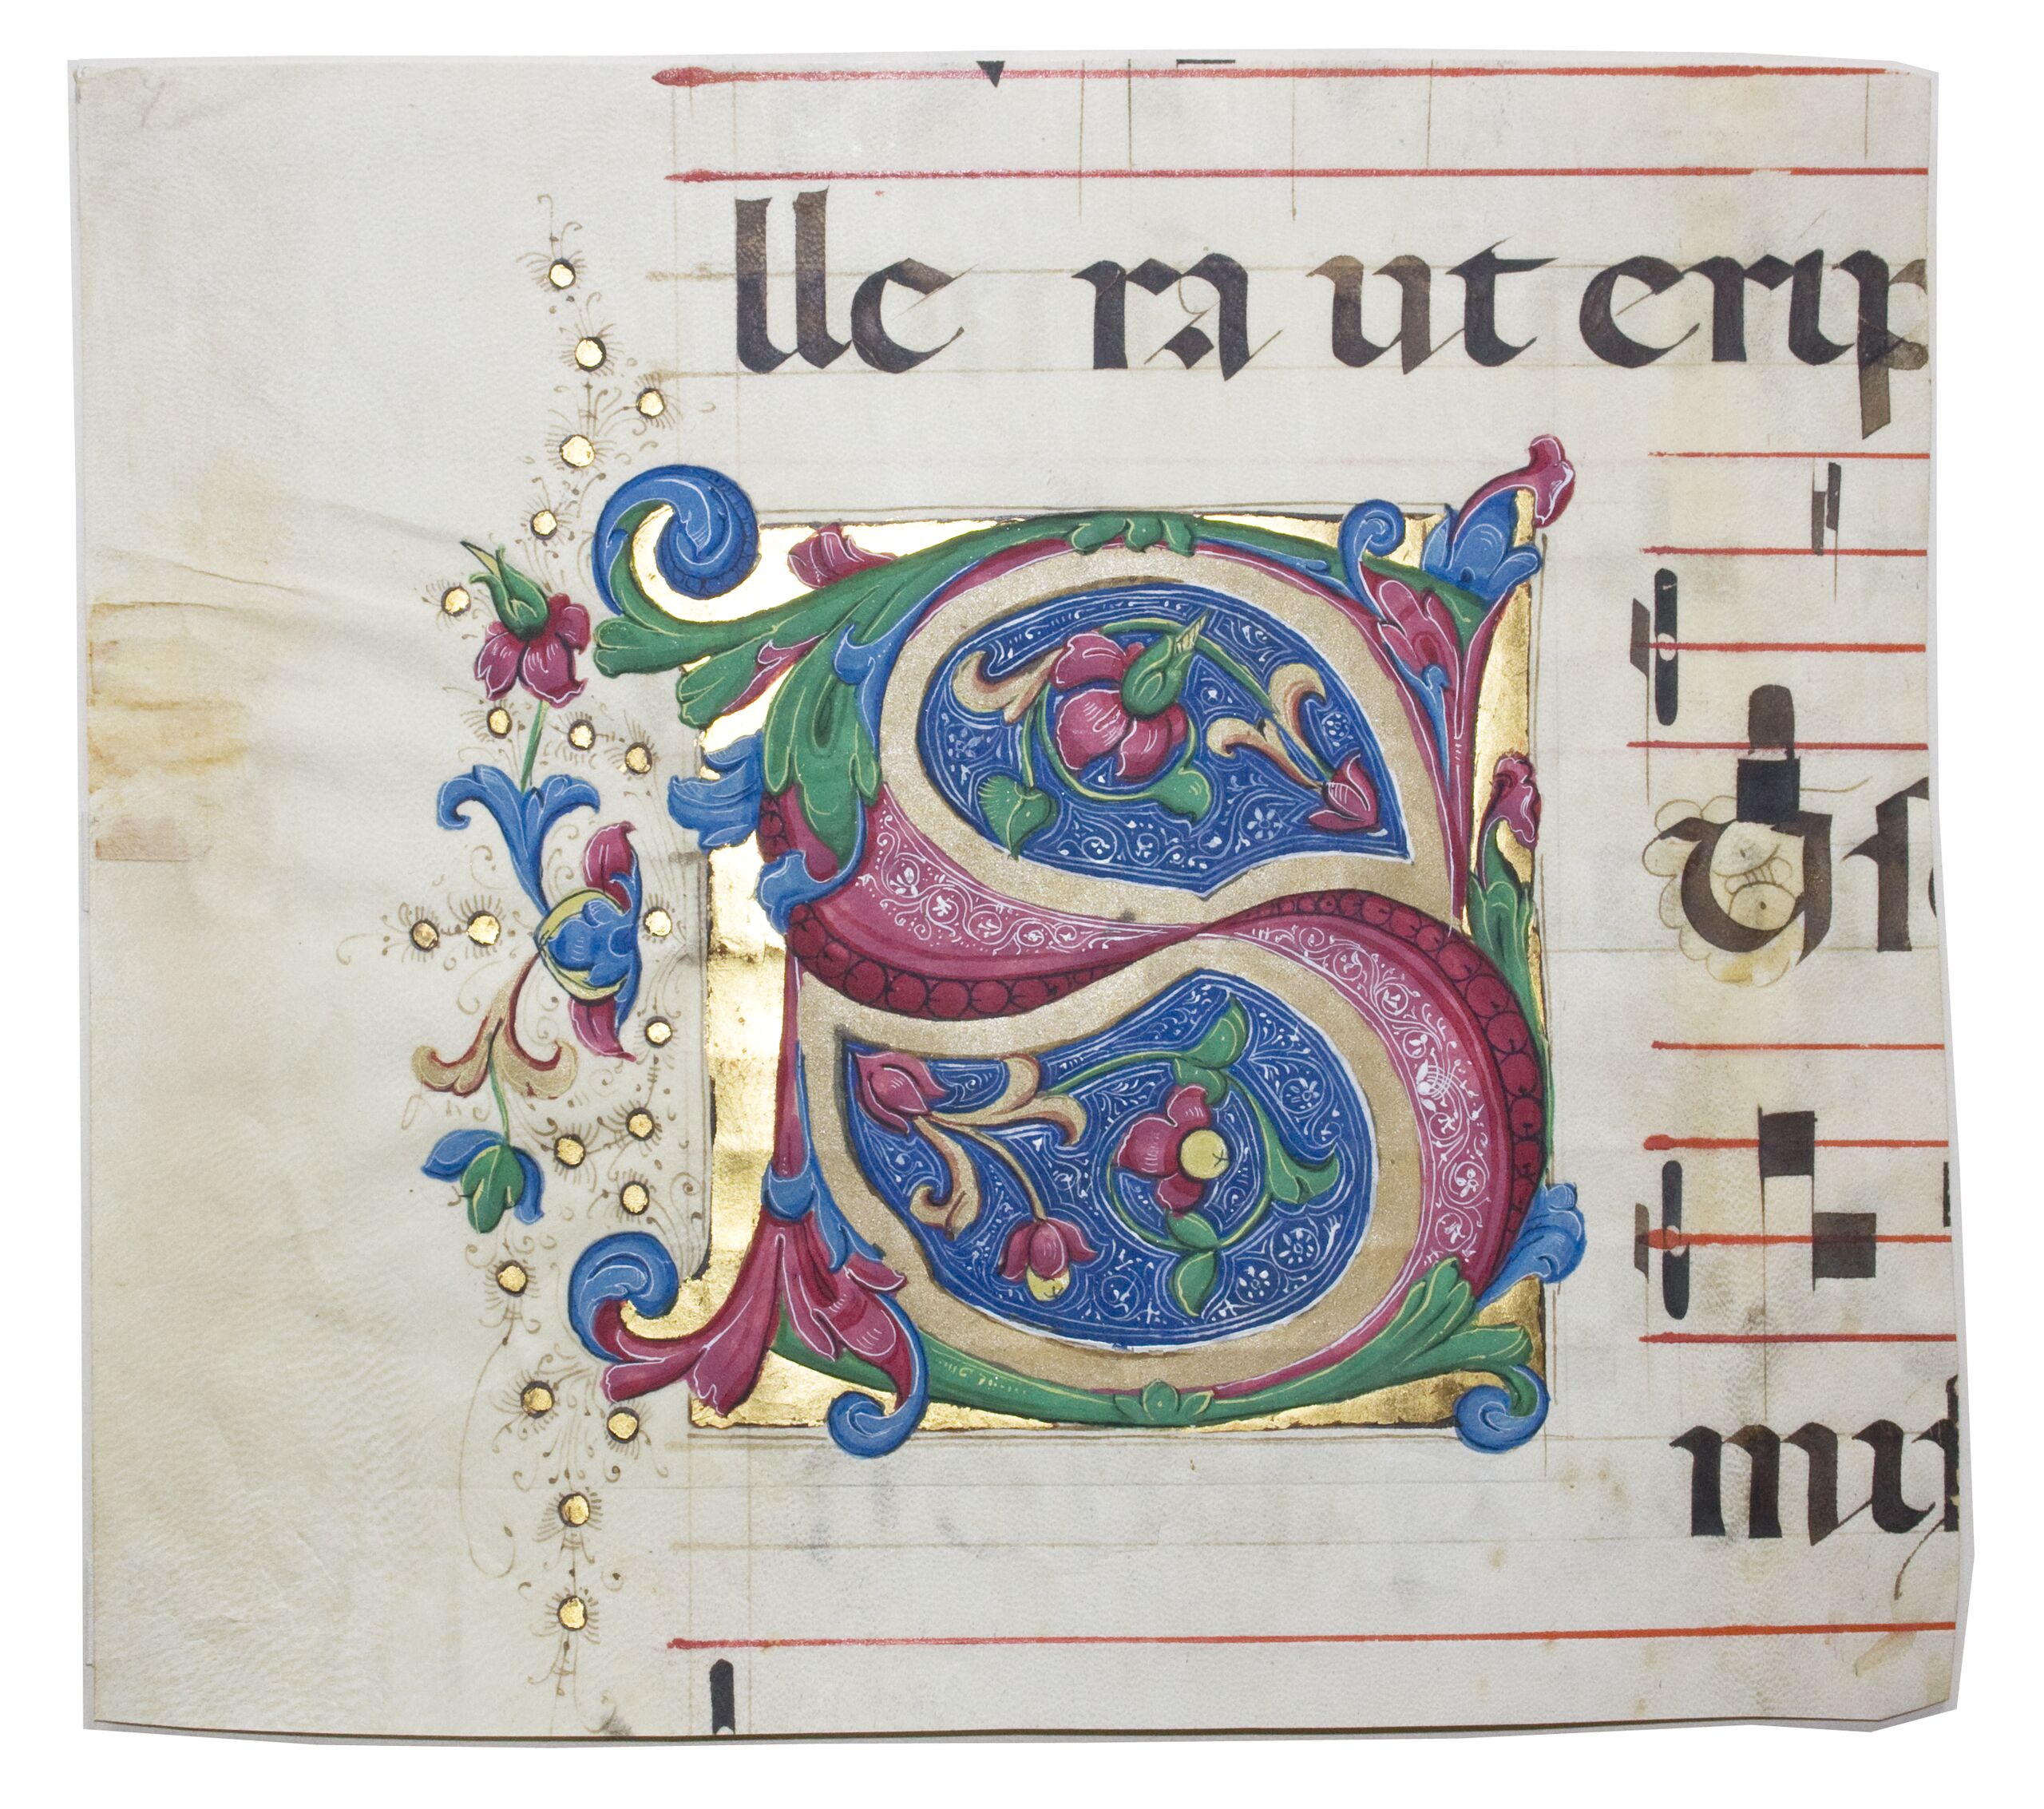 lle ra ut erip
S Uſ
mi